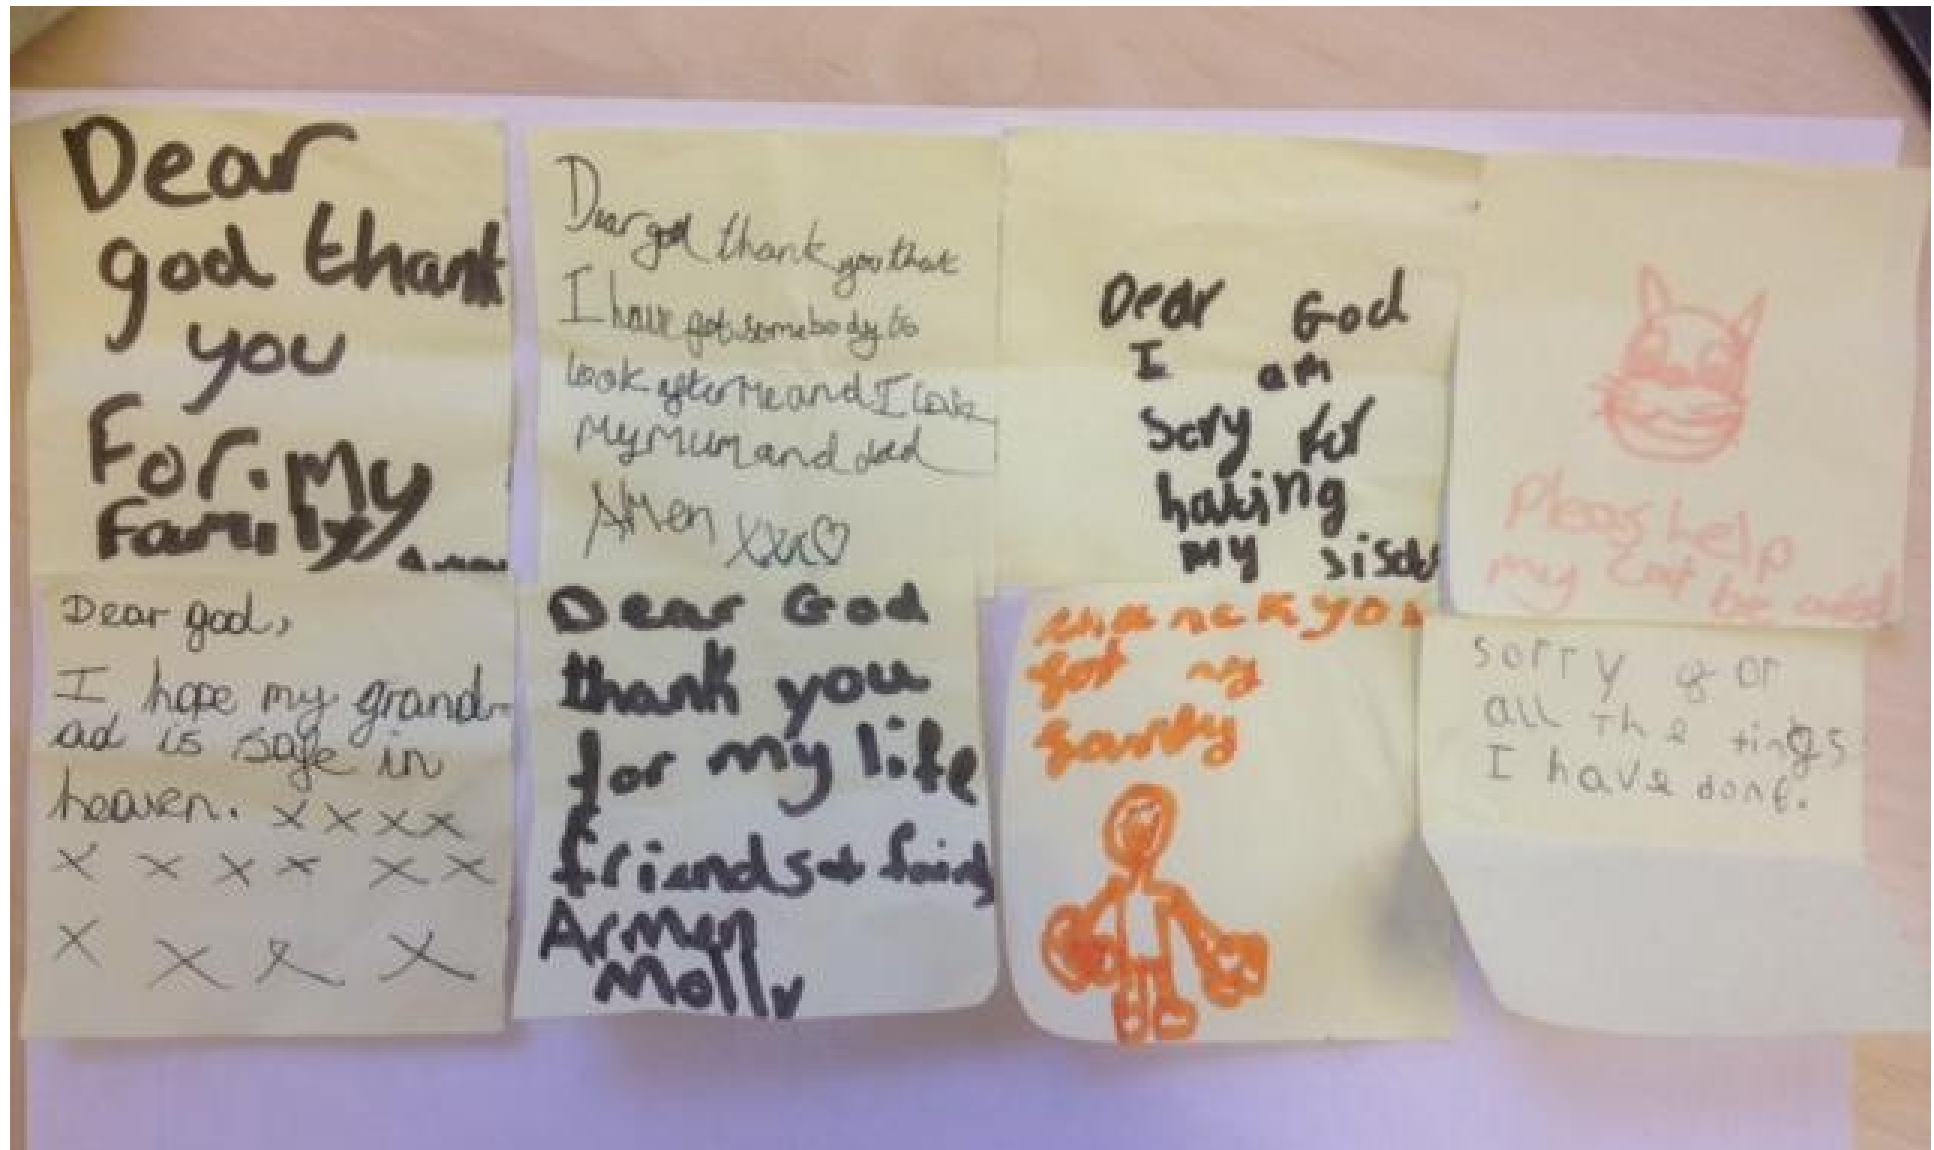 Dear
god thank
you
For. My
family
Dear god thank you that
I have got somebody to
look after me and I love
My Mum and dad
Amen xxx♡
Dear God
I am
sory for
hating
my
Pleas help
my Cat be
Dear god,
I hope my grand-
ad is safe in
heaven. x x x x
x x x x x x
x x x x
Dear God
thank you
for my life
friends +
Armen
Molly
thanck you
for my
sorry for
all the tings
I have done.